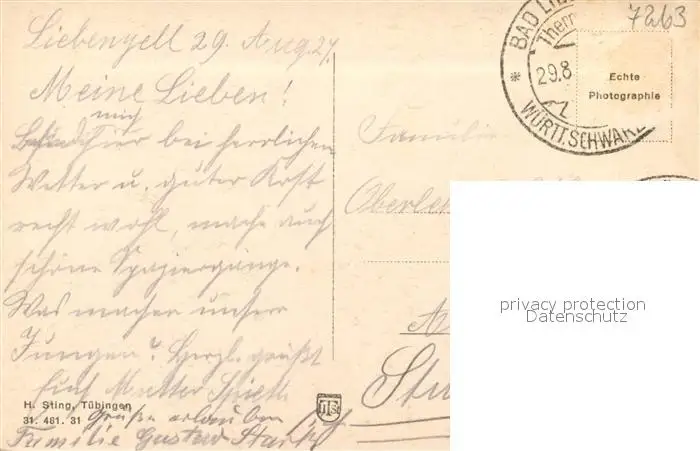 Liebenzell 29. Aug. 27.
Meine Lieben!
mich
Befinde hier bei herrlichem
Wetter u. guter Kost
recht wohl, mache auch
schöne Spaziergänge.
Was machen unsere
Jungen? Herzl. grüßt
Euch Mutter
Grüße erlauben
Familie Gustav
H. Sting, Tübingen
31. 461. 31
7263
BAD
29.8
WÜRTT. SCHWARZ
Echte
Photographie
Familie
privacy protection
Datenschutz